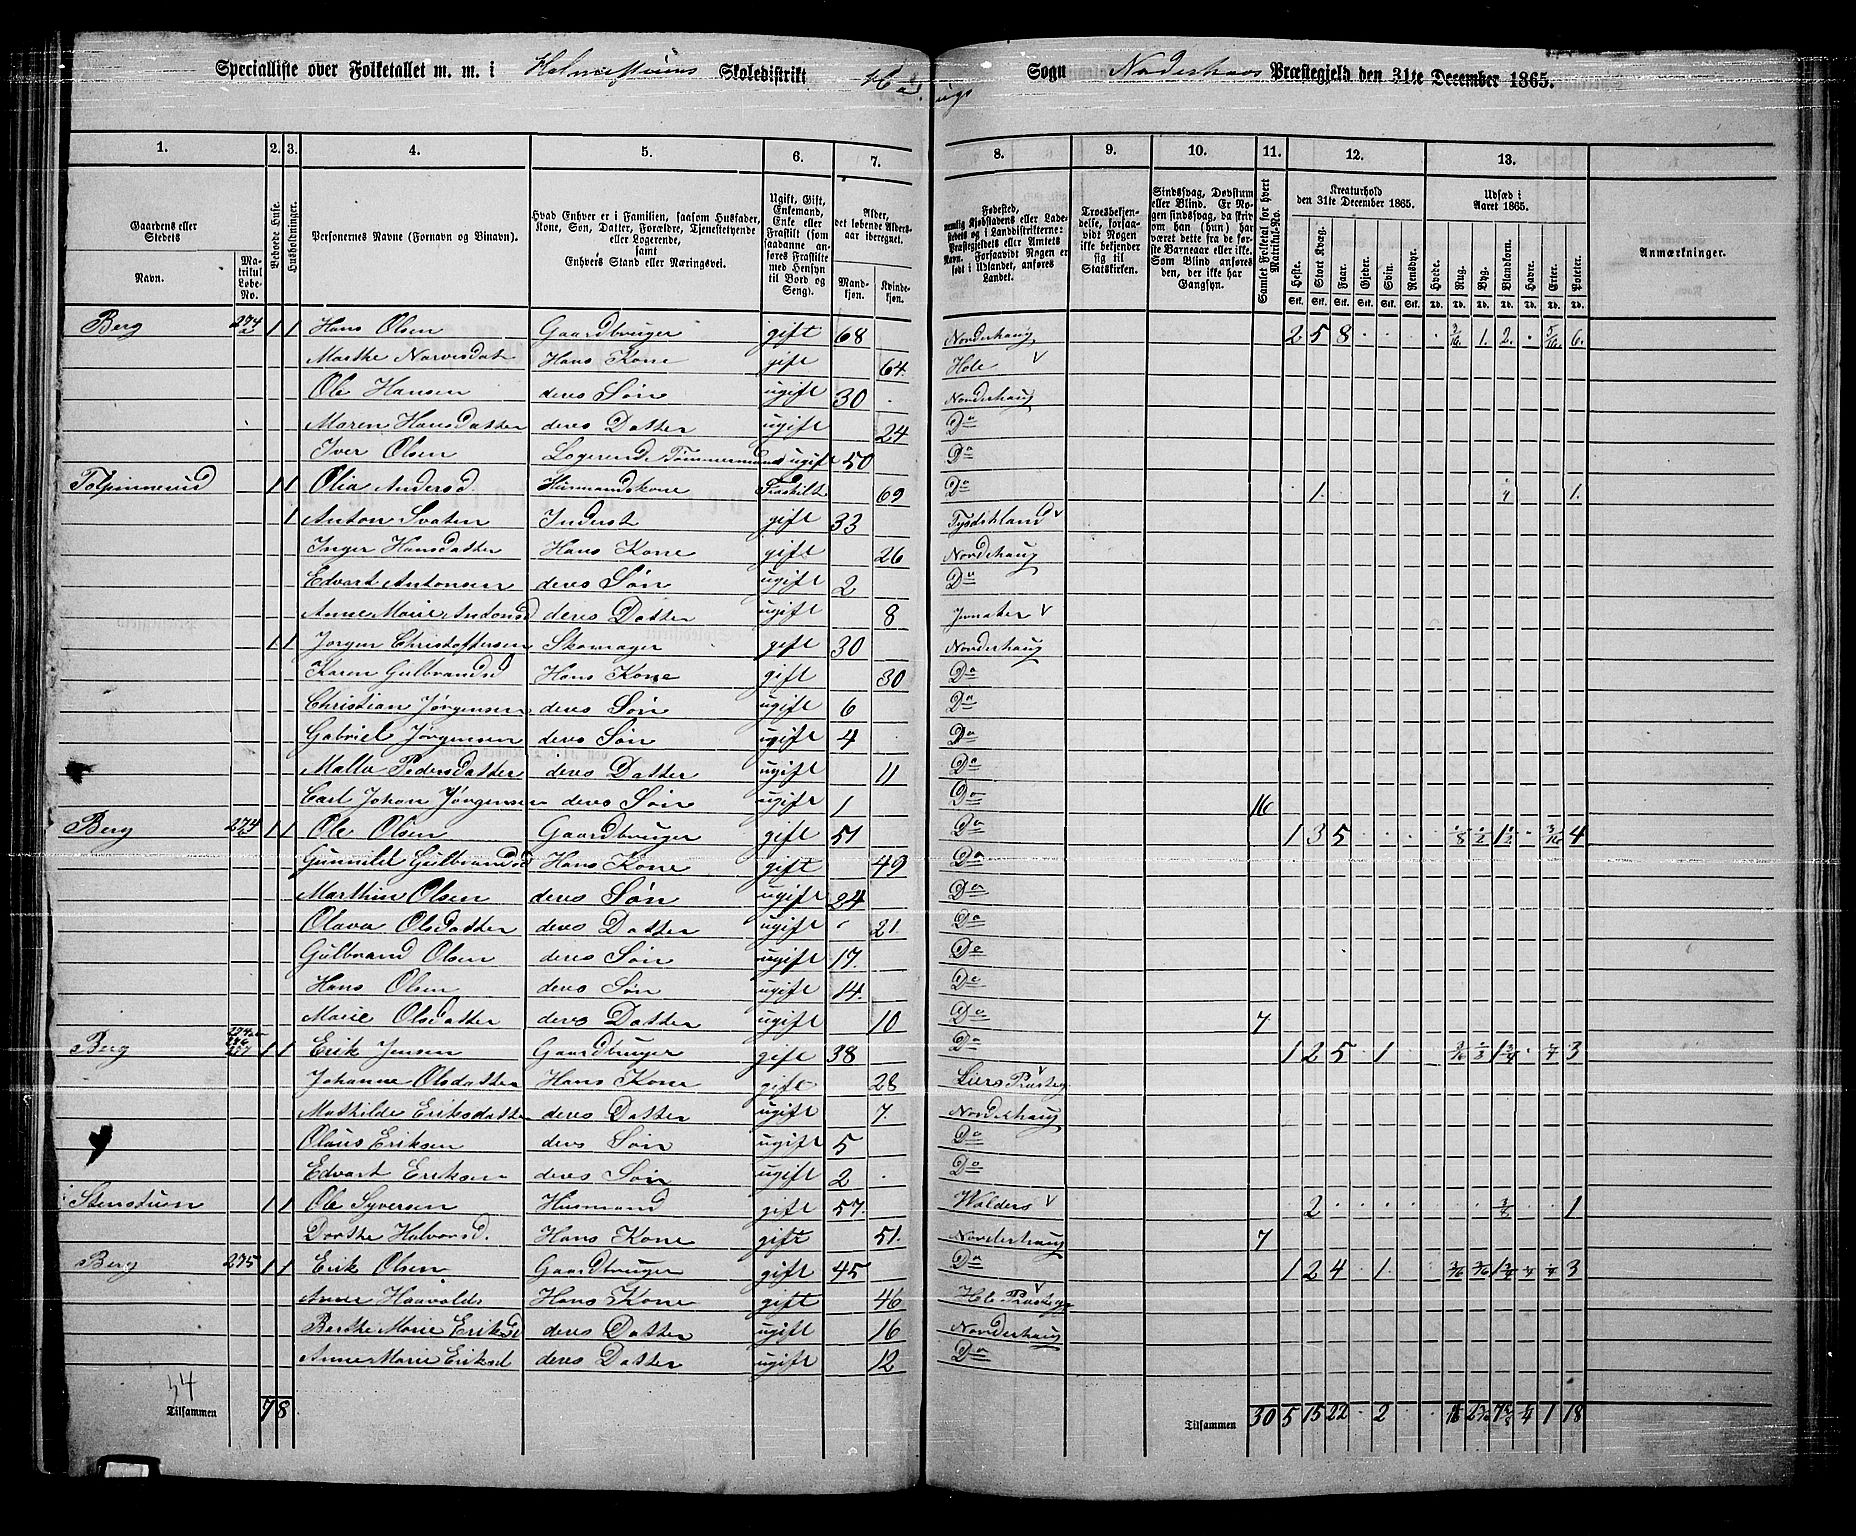 Specialliste over Folketallet m. m. i Skoledistrikt Sogn Præstegjeld den 31te December 1865.
1. 2. 3. 4. 5. 6. 7. 8. 9. 10. 11. 12. 13.
Gaardens eller Stedets
Navn.
Matrikul Løbe-No.
Beboede Huse.
Husholdninger.
Personernes Navne (Fornavn og Binavn).
Hvad Enhver er i Familien, saasom Husfader, Kone, Søn, Datter, Forældre, Tjenestetyende eller Logerende, samt Enhvers Stand eller Næringsvei.
Ugift, Gift, Enkemand, Enke eller Fraskilt (som saadanne anføres Fraskilte med Hensyn til Bord og Seng).
Alder, det løbende Aldersaar iberegnet.
Mandkjøn. Kvindekjøn.
Fødested,
Troesbekjendelse, forsaavidt Nogen ikke bekjender sig til Statskirken.
Sindssvag, Døvstum eller Blind. Er Nogen sindssvag, da skriv om han (hun) har været dette fra de første Barneaar eller ikke. Som Blind anføres den, der ikke har Gangsyn.
Samlet Folketal for hvert Matrikul-No.
Kreaturhold den 31te December 1865.
Heste. Stort Kvæg. Faar. Gjeder. Svin. Rensdyr.
Udsæd i Aaret 1865.
Hvede. Rug. Byg. Blandkorn. Havre. Erter. Poteter.
Anmærkninger.
Berg 274 1 1 Hans Olsen Gaardbruger gift 68 Norderhaug 2 5 8 3/16 1 2 5/16 6
Marthe Narvesdat Hans Kone gift 64 Hole
Ole Hansen deres Søn ugift 30 Norderhaug
Maren Hansdatter deres Datter ugift 24 Do
Iver Olsen Logerende Tømmermand ugift 50 Do
Tolpinnerud 1 1 Olia Andersd. Husmandskone Fraskilt 69 Do 1 1
1 Anton Svaten Inderst gift 33 Tydskland
Inger Hansdatter Hans Kone gift 26 Norderhaug
Edvart Antonsen deres Søn ugift 2 Do
Anne Marie Antonsd deres Datter ugift 8 Jevnaker
1 1 Jørgen Christoffersen Skomager gift 30 Norderhaug
Karen Gulbrandsd Hans Kone gift 30 Do
Christian Jørgensen deres Søn ugift 6 Do
Gabriel Jørgensen deres Søn ugift 4 Do
Malla Pedersdatter deres Datter ugift 11 Do
Carl Johan Jørgensen deres Søn ugift 1 Do 16
Berg 274 1 1 Ole Olsen Gaardbruger gift 51 Do 1 3 5 1/8 1/2 1 1/2 3/16 4
Gunnild Gulbrandsd Hans Kone gift 49 Do
Marthin Olsen deres Søn ugift 24 Do
Olava Olsdatter deres Datter ugift 21 Do
Gulbrand Olsen deres Søn ugift 17 Do
Hans Olsen deres Søn ugift 14 Do
Marie Olsdatter deres Datter ugift 10 Do 7
Berg 1 1 Erik Jensen Gaardbruger gift 38 Do 1 2 5 1 1 3/4 1/4 3
Johanne Olsdatter Hans Kone gift 28 Liers Præsteg
Mathilde Eriksdatter deres Datter ugift 7 Norderhaug
Olaus Eriksen deres Søn ugift 5 Do
Edvart Eriksen deres Søn ugift 2 Do
Stenstuen 1 1 Ole Syversen Husmand gift 57 Walders 2 3/8 1
Dorthe Halvorsd. Hans Kone gift 51 Norderhaug 7
Berg 275 1 1 Erik Olsen Gaardbruger gift 45 Do 1 2 4 1 3/16 3/16 1 3/4 1/4 1/4 3
Anne Haavoldsd Hans Kone gift 46 Hole Præsteg
Berthe Marie Eriksd deres Datter ugift 16 Norderhaug
Anne Marie Eriksd deres Datter ugift 12 Do
34
Tilsammen 7 8 Tilsammen 30 5 15 22 2 1 18